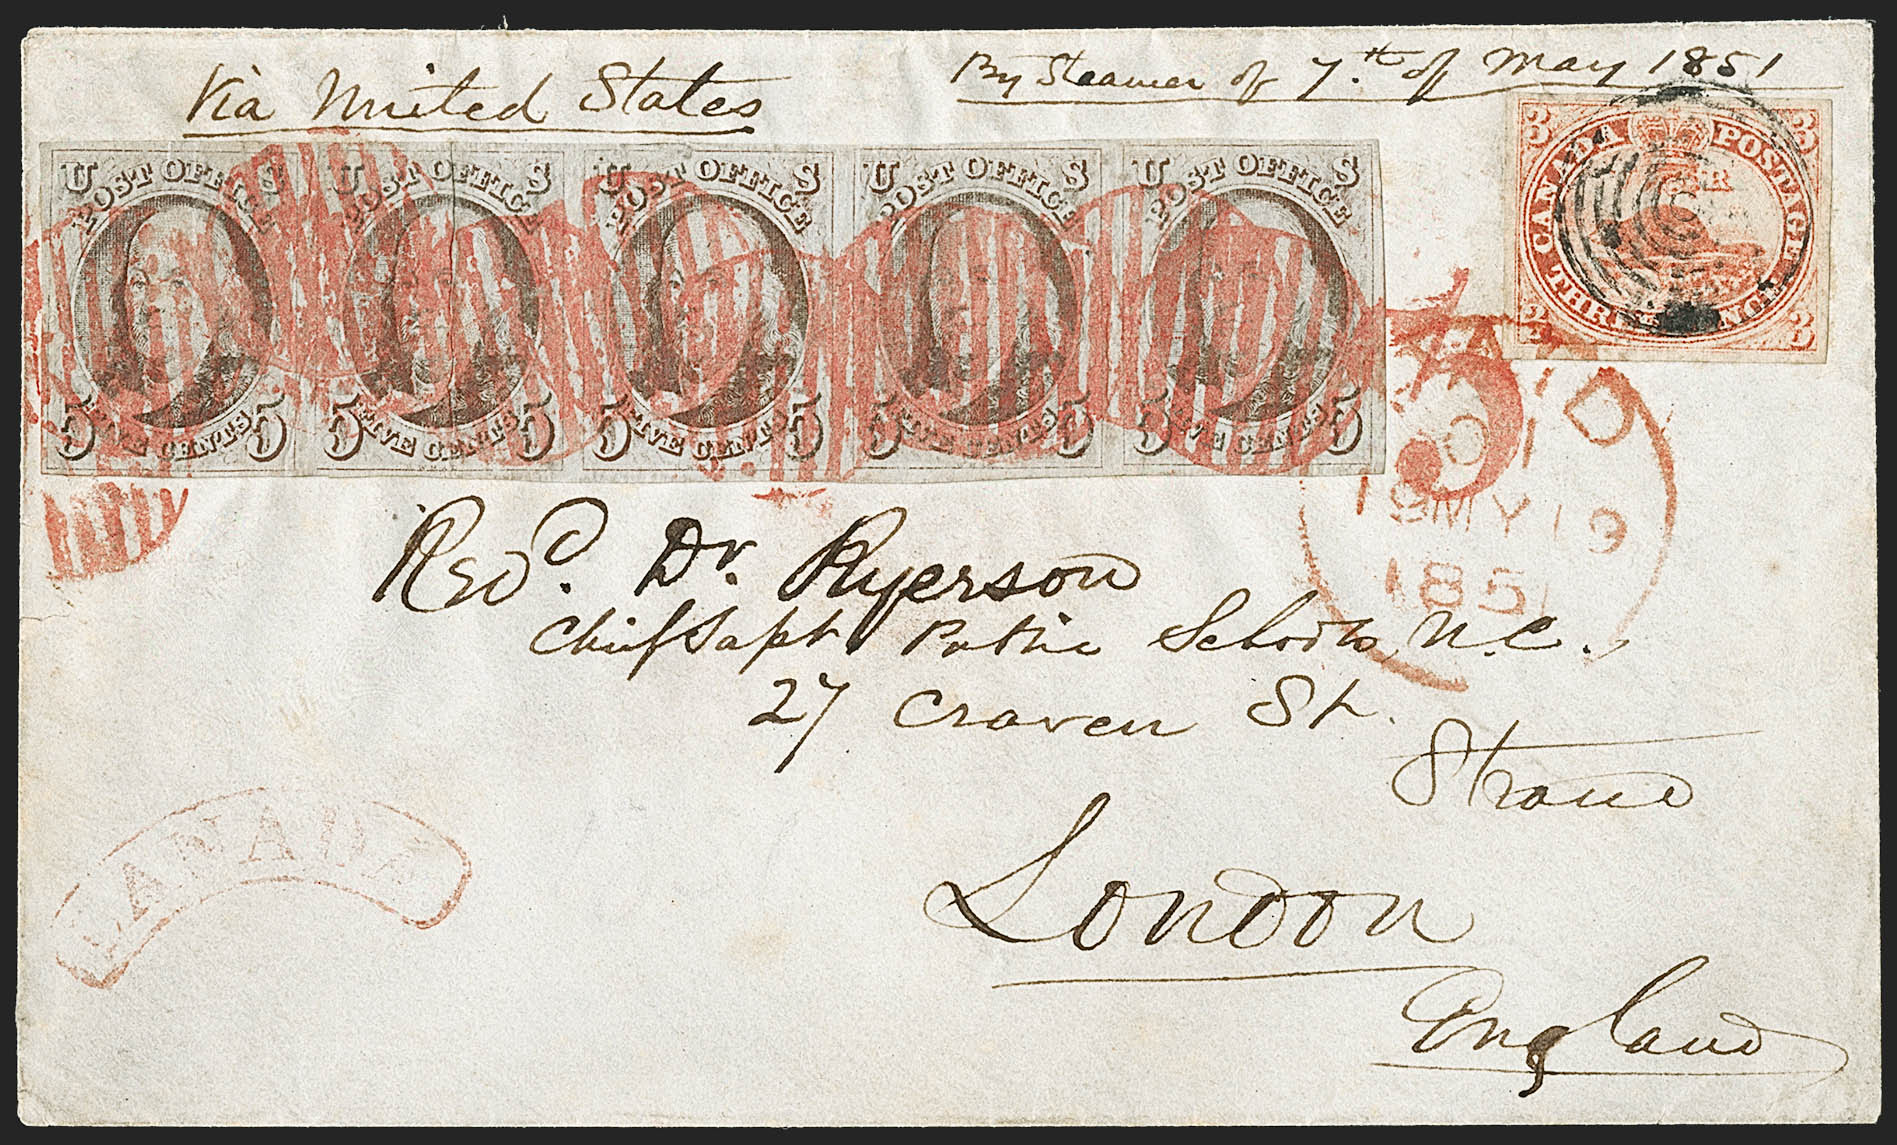 Via United States
By Steamer of 7.th of May 1851
U S
POST OFFICE
FIVE CENTS
5 5
U S
POST OFFICE
FIVE CENTS
5 5
U S
POST OFFICE
FIVE CENTS
5 5
U S
POST OFFICE
FIVE CENTS
5 5
U S
POST OFFICE
FIVE CENTS
5 5
3 3
CANADA POSTAGE
THREE PENCE
3 3
PAID
19 MY 19
1851
Revd. Dr. Ryerson
Chief Supt. Public Schools, U.C.
27 Craven St.
Strand
London
England
CANADA